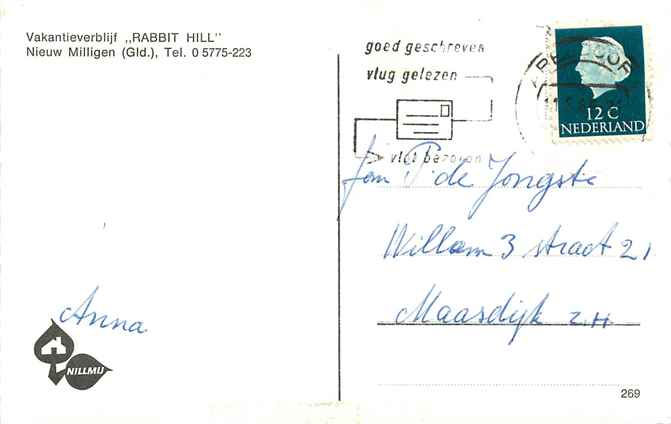 Vakantieverblijf „RABBIT HILL"
Nieuw Milligen (Gld.), Tel. 0 5775-223
goed geschreven
vlug gelezen
vlot bezorgd
APELDOORN
12 C
NEDERLAND
Fam P. de Jongste
Willem 3 straat 21
Maasdijk Z.H.
Anna
NILLMIJ
269